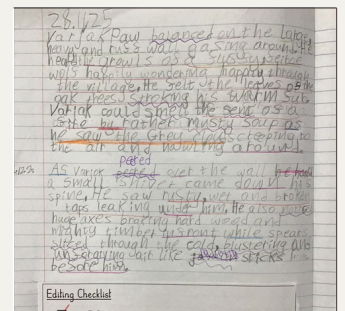 28.1.25
Varjak Paw balanced on the large,
navy and russ wall gasing around. He
heard the growls of a
wols happily wondering happily through
the village. He felt the leaves of the
oak trees stroking his warm fur.
Varjak could smell the sent as
the but rother musty soup as
he saw the Grey clays creeping to
the air and howling around.
peted
As Varjak over the wall he had
a small shiver came down his
spine. He saw rusty, wet and broken
taps leaking under him. He also
huge axes braking hard weed and
mighty timber in front while spears
sliced through the cold, blustering and
wait like sticks
before him.
Editing Checklist